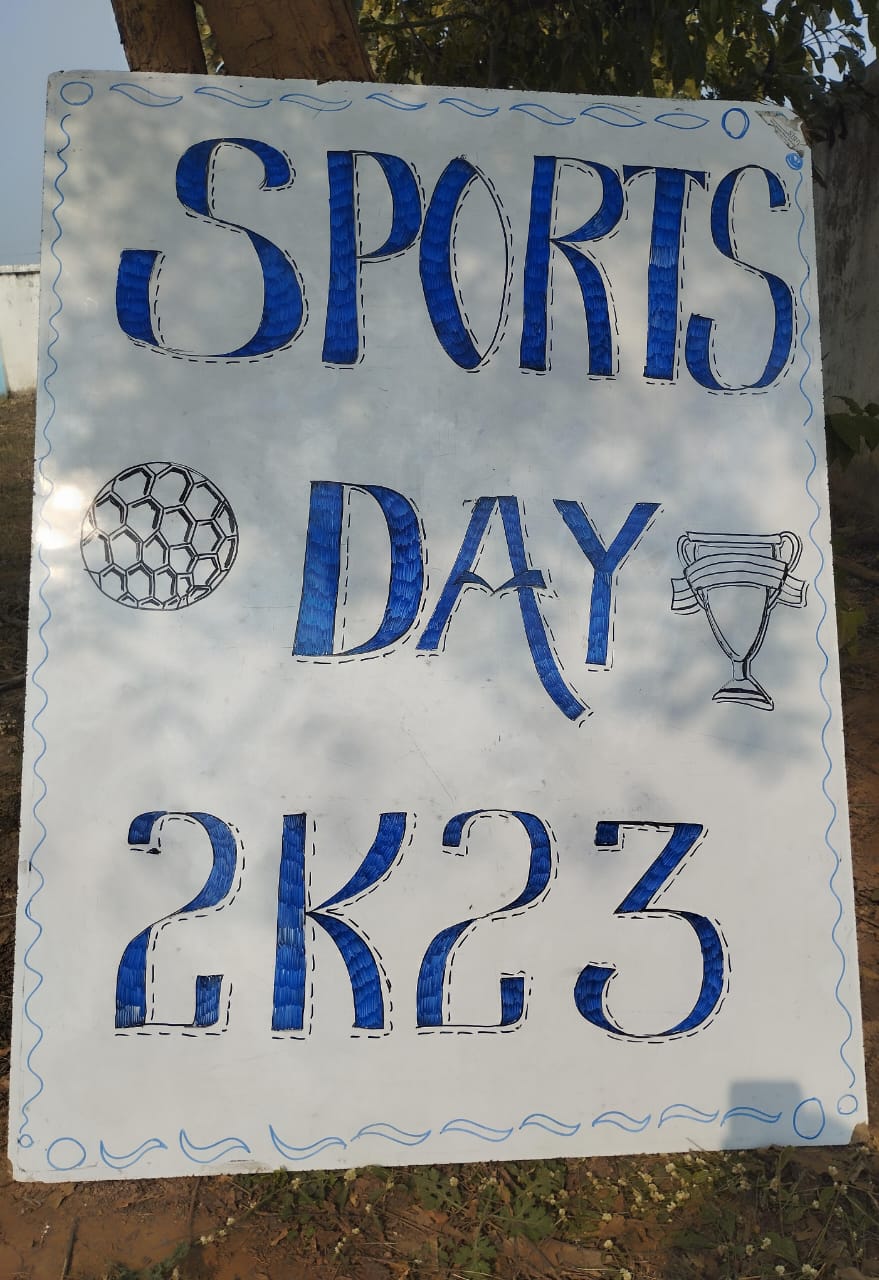 SPORTS
DAY
2K23